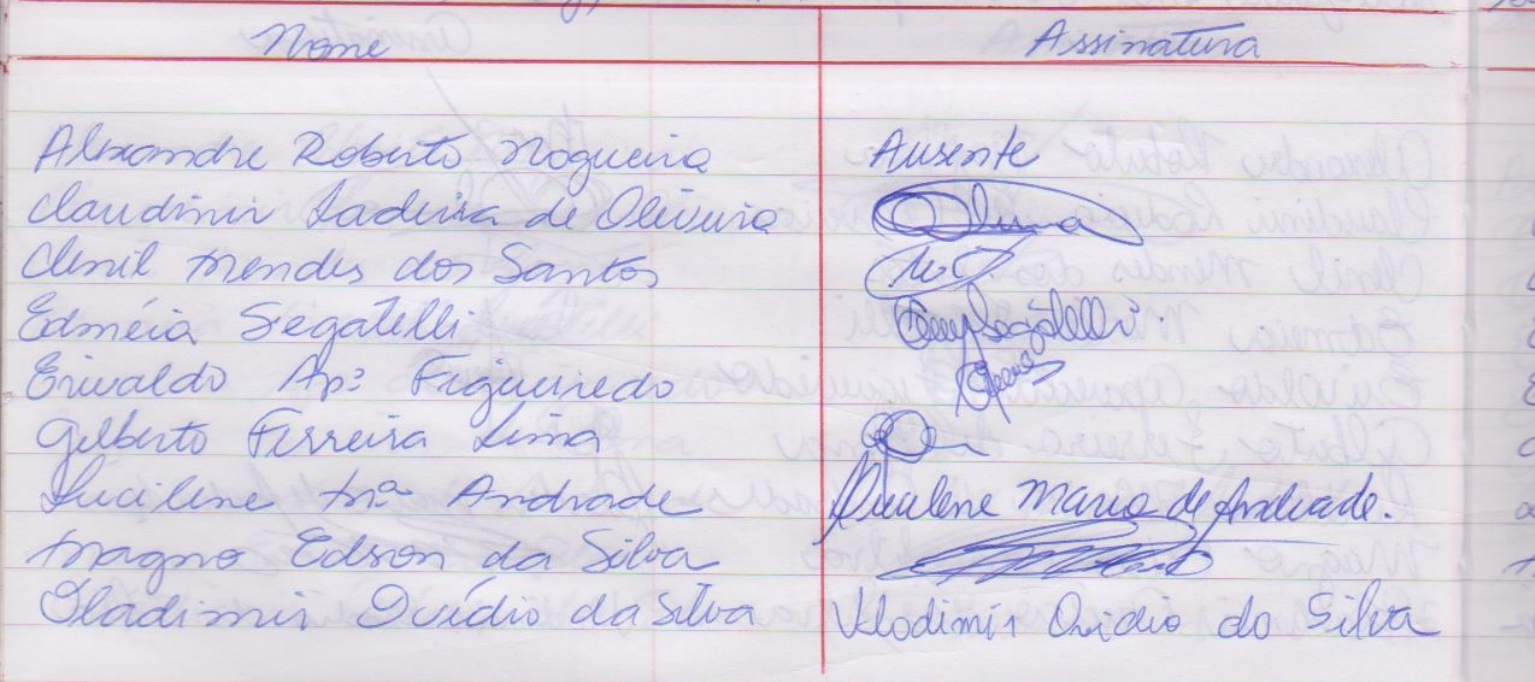 Nome Assinatura
Alexandre Roberto Nogueira Ausente
Claudimir Ladeira de Oliveira
Clenil Mendes dos Santos
Edméia Segatelli Segatelli
Erivaldo Apº Figueiredo
Gilberto Ferreira Lima
Lucilene Mª Andrade Lucilene Maria de Andrade.
Magno Edson da Silva
Vladimir Ovídio da Silva Vladimir Ovidio da Silva